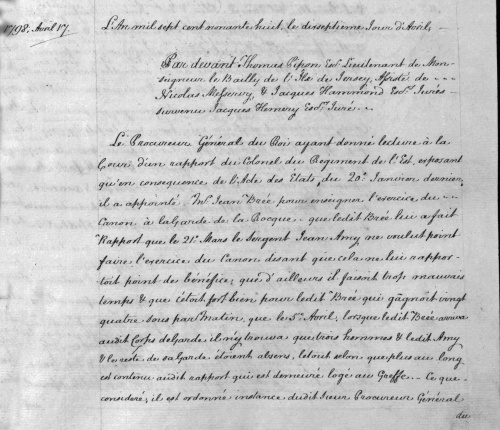 1798, Avril 17.
L'An mil sept cent nonante huit, le dixseptieme Jour d'Avril,
Par devant Thomas Pipon Esc. Lieutenant de Mon-
sieur le Bailly de l'Ile de Jersey, Assisté, de
Nicolas Messervy, & Jacques Hammond Escrs. Jurés
survenu Jacques Hemery Escr. Juré
Le Procureur Général du Roi ayant donné lecture à la
Cour d'un rapport du Colonel du Regiment de l'Est, exposant
qu'en consequence de l'Acte des Etats, du 20e. Janvier dernier,
il a appointé Mr. Jean Brée pour enseigner l'exercice du
Canon à la Garde de la Rocque que ledit Brée lui a fait
Rapport que le 21e. Mars le Sergent Jean Amy ne voulut point
faire l'exercice du Canon disant que cela ne lui rappor-
toit point de bénéfice; que d'ailleurs il faisait trop mauvais
temps & que c'étoit fort bien pour ledit Brée qui gâgnoit vingt
quatre sous par Matin, que le 5e. Avril, lorsque ledit Brée arriva
audit Corps de Garde il n'y trouva que trois hommes & ledit Amy
& le reste de sa Garde étoient absens, le tout selon que plus au long
est contenu audit rapport qui est demeuré logé au Greffe. Ce que
consideré, il est ordonné instance dudit Sieur Procureur Général
du